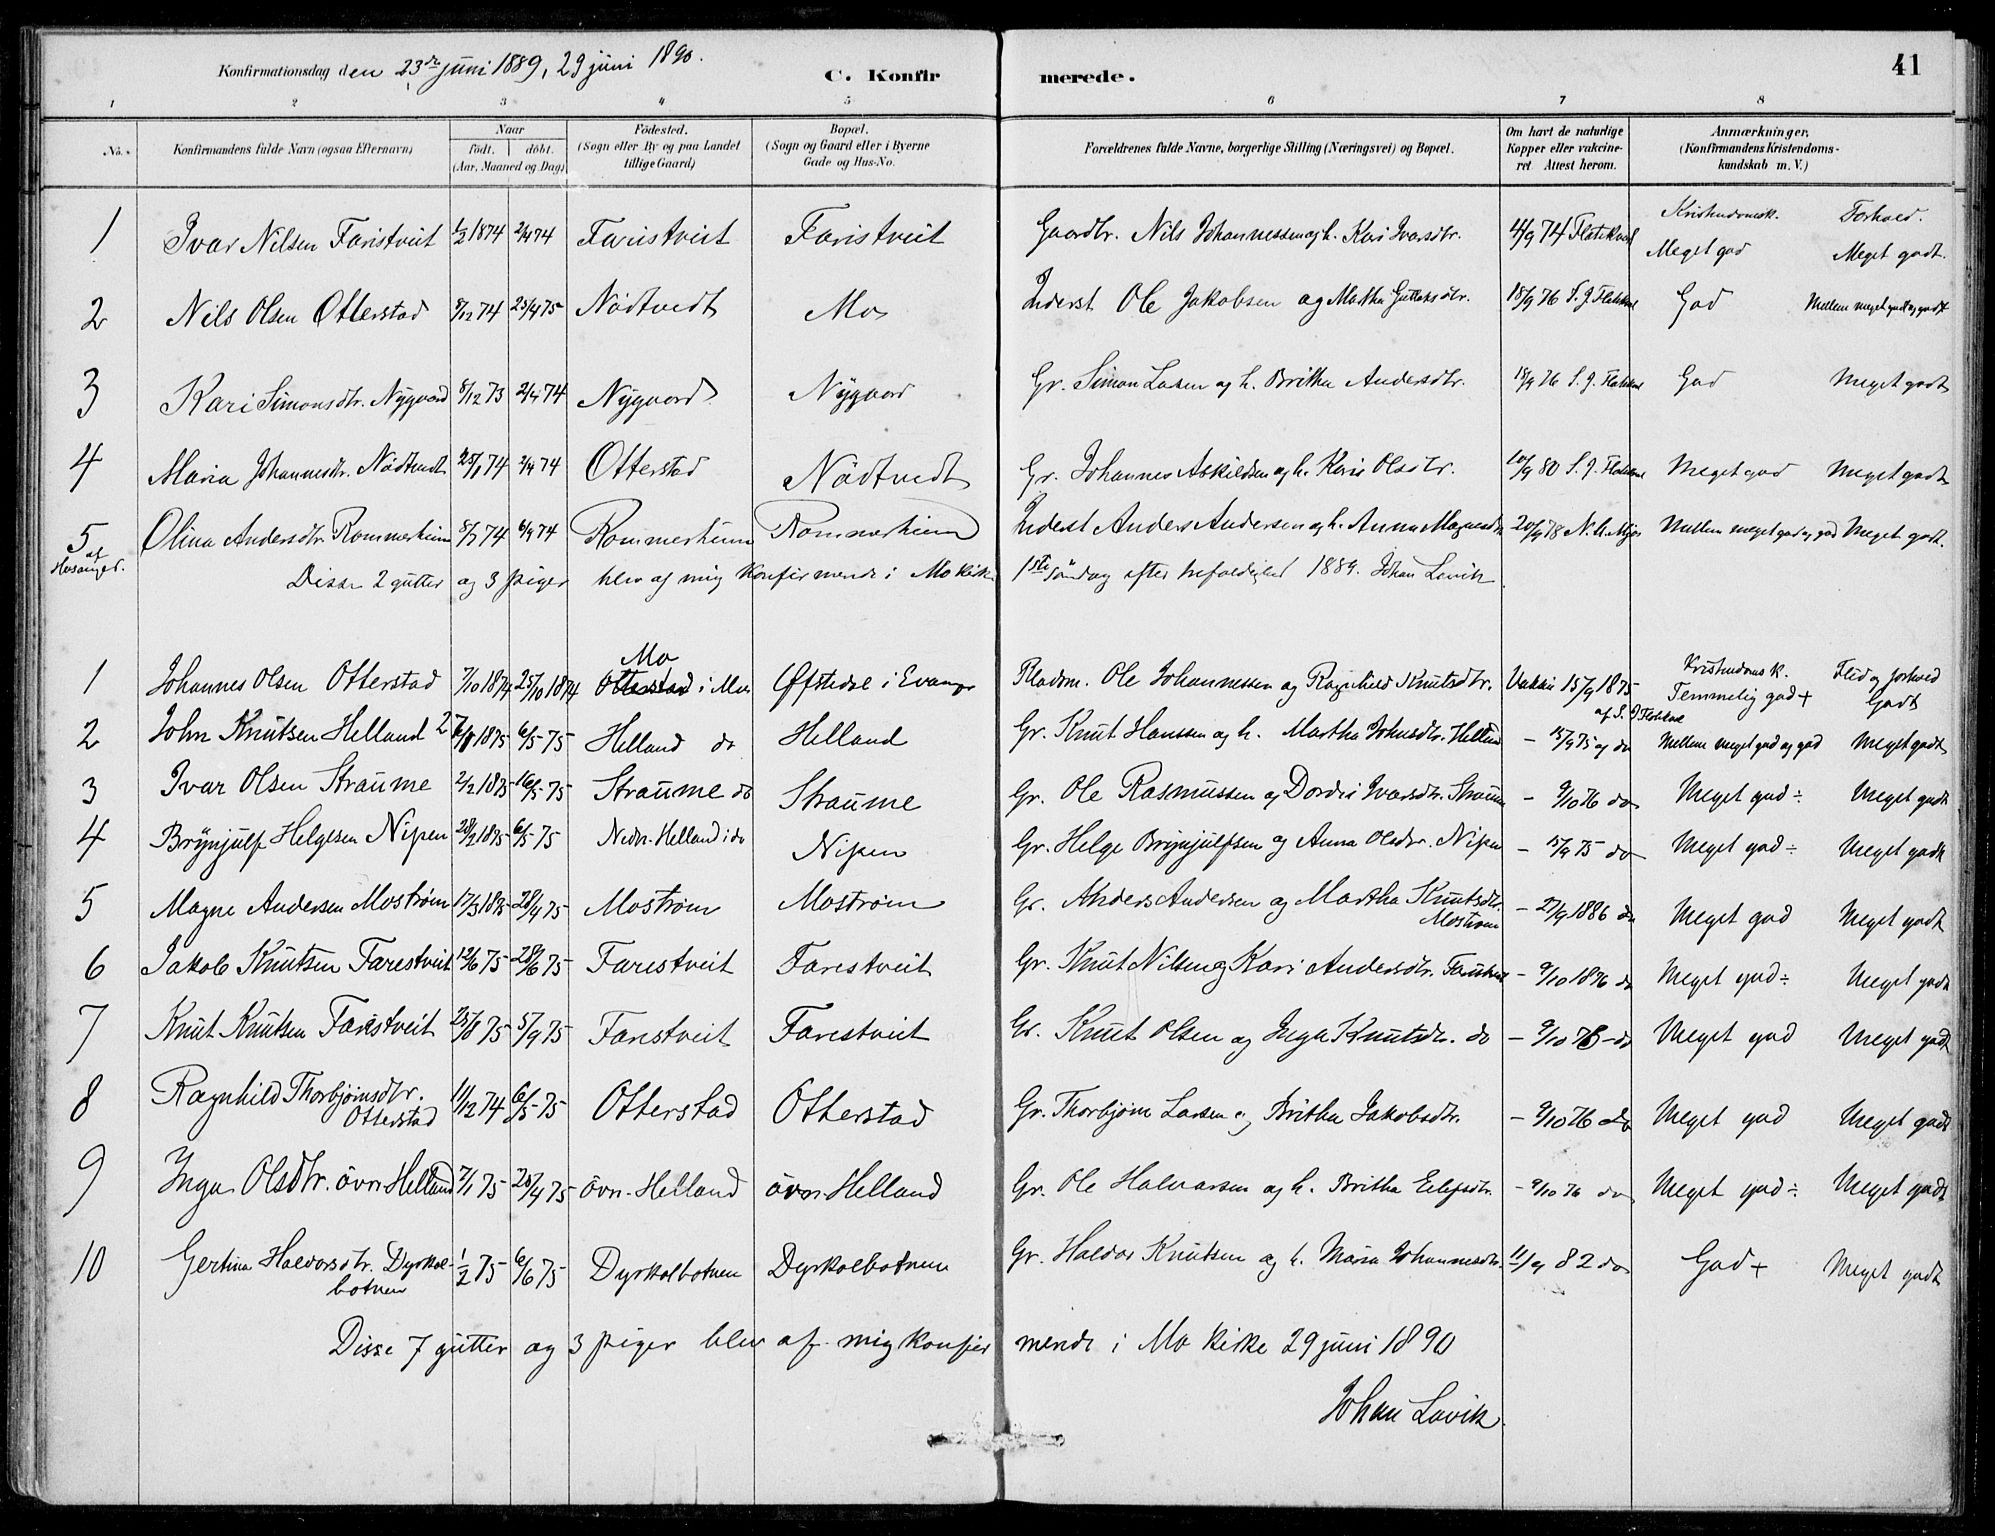 Konfirmationsdag den 23de juni 1889, 29 juni 1890.
C. Konfirmerede.
41
1 2 3 4 5 6 7 8
No. Konfirmandens fulde Navn (ogsaa Efternavn) Naar födt. döbt. (Aar, Maaned og Dag) Födested. (Sogn eller By og paa Landet tillige Gaard) Bopæl. (Sogn og Gaard eller i Byerne Gade og Hus-No. Forældrenes fulde Navne, borgerlige Stilling (Næringsvei) og Bopæl. Om havt de naturlige Kopper eller vakcineret Attest herom. Anmærkninger. (Konfirmandens Kristendomskundskab m. V.)
Kristendomsk. Forhold.
1 Ivar Nilsen Faristveit 1/2 1874 2/4 74 Faristveit Faristveit Gaardbr. Nils Johannessen og h. Kari Ivarsdtr. 4/9 74 Flatekval Meget god Meget godt.
2 Nils Olsen Otterstad 8/12 74 25/4 75 Nödtvedt Mo Inderst Ole Jakobsen og Martha Guttormsdtr. 18/9 76 S. J. Flatekval God Mellem meget godt og godt
3 Kari Simonsdtr. Nygaard 8/12 73 2/4 74 Nygaard Nygaard Gr. Simon Larsen og h. Britha Andersdtr. 18/9 76 S. J. Flatekval God Meget godt
4 Maria Johannesdtr. Nödtvedt 25/1 74 2/4 74 Otterstad Nödtvedt Gr. Johannes Askildsen og h. Kari Olsdtr. 10/9 80 S. J. Flatekval Meget god Meget godt
5 af Hosanger. Olina Andersdtr. Rommerheim 8/7 74 6/9 74 Rommerheim Rommerheim Inderst Anders Andersen og h. Anna Magnesdtr. 20/9 78 N. A. Mjös Mellem meget god og god Meget godt.
Disse 2 gutter og 3 piger blev af mig konfirmerede i Mo kirke 1ste söndag efter trefoldighed 1889. Johan Lavik
Kristendomsk. Flid og forhold
1 Johannes Olsen Otterstad 7/10 1874 25/10 1874 Mo Otterstad i Mo Øfstedal i Evanger Pladsm. Ole Johannessen og Ragnhild Knutsdtr. Vakcin 15/9 1875 af S. J. Flatekval Temmelig god + Godt
2 John Knutsen Helland 1875 6/5 75 Helland do Helland Gr. Knut Hanssen og h. Martha Johnsdtr. Helland – 15/9 75 af do Mellem meget god og god Meget godt
3 Ivar Olsen Straume 2/2 1875 16/5 75 Straume do Straume Gr. Ole Rasmussen og Dordei Ivarsdtr. Straume – 9/10 76 do Meget god ÷ Meget godt
4 Brynjulf Helgesen Nipen 28/2 1875 6/5 75 Nedre Helland i do Nipen Gr. Helge Brynjulfsen og Anna Olsdtr. Nipen – 15/9 75 do Meget god ÷ Meget godt
5 Magne Andersen Mostrøm 17/3 1875 28/4 75 Mostrøm Mostrøm Gr. Anders Andersen og Martha Knutsdtr. Mostrøm – 27/9 1886 do Meget god Meget godt
6 Jakob Knutsen Farestveit 12/6 75 28/6 75 Farestveit Farestveit Gr. Knut Nilsen og Kari Andersdtr. Farestveit – 9/10 1876 do Meget god ÷ Meget godt
7 Knut Knutsen Farestveit 25/8 75 5/9 75 Farestveit Farestveit Gr. Knut Olsen og Inga Knutsdtr. do – 9/10 76 – do Meget god Meget godt
8 Ragnhild Thorbjörnsdtr. Otterstad 11/12 74 6/5 75 Otterstad Otterstad Gr. Thorbjörn Larsen og Britha Jakobsdtr. – 9/10 76 do Meget god Meget godt
9 Inga Olsdtr. övre Helland 7/1 75 28/4 75 övre Helland övre Helland Gr. Ole Halvarsen og h. Britha Eilefsdtr. – 9/10 76 do Meget god ÷ Meget godt
10 Gertina Haldorsdtr. Dyrkolbotnen 1/2 75 6/6 75 Dyrkolbotnen Dyrkolbotnen Gr. Haldor Knutsen og h. Maria Johannesdtr. 11/9 82 do God + Meget godt
Disse 7 gutter og 3 piger blev af mig konfirmerede i Mo kirke 29 juni 1890
Johan Lavik.